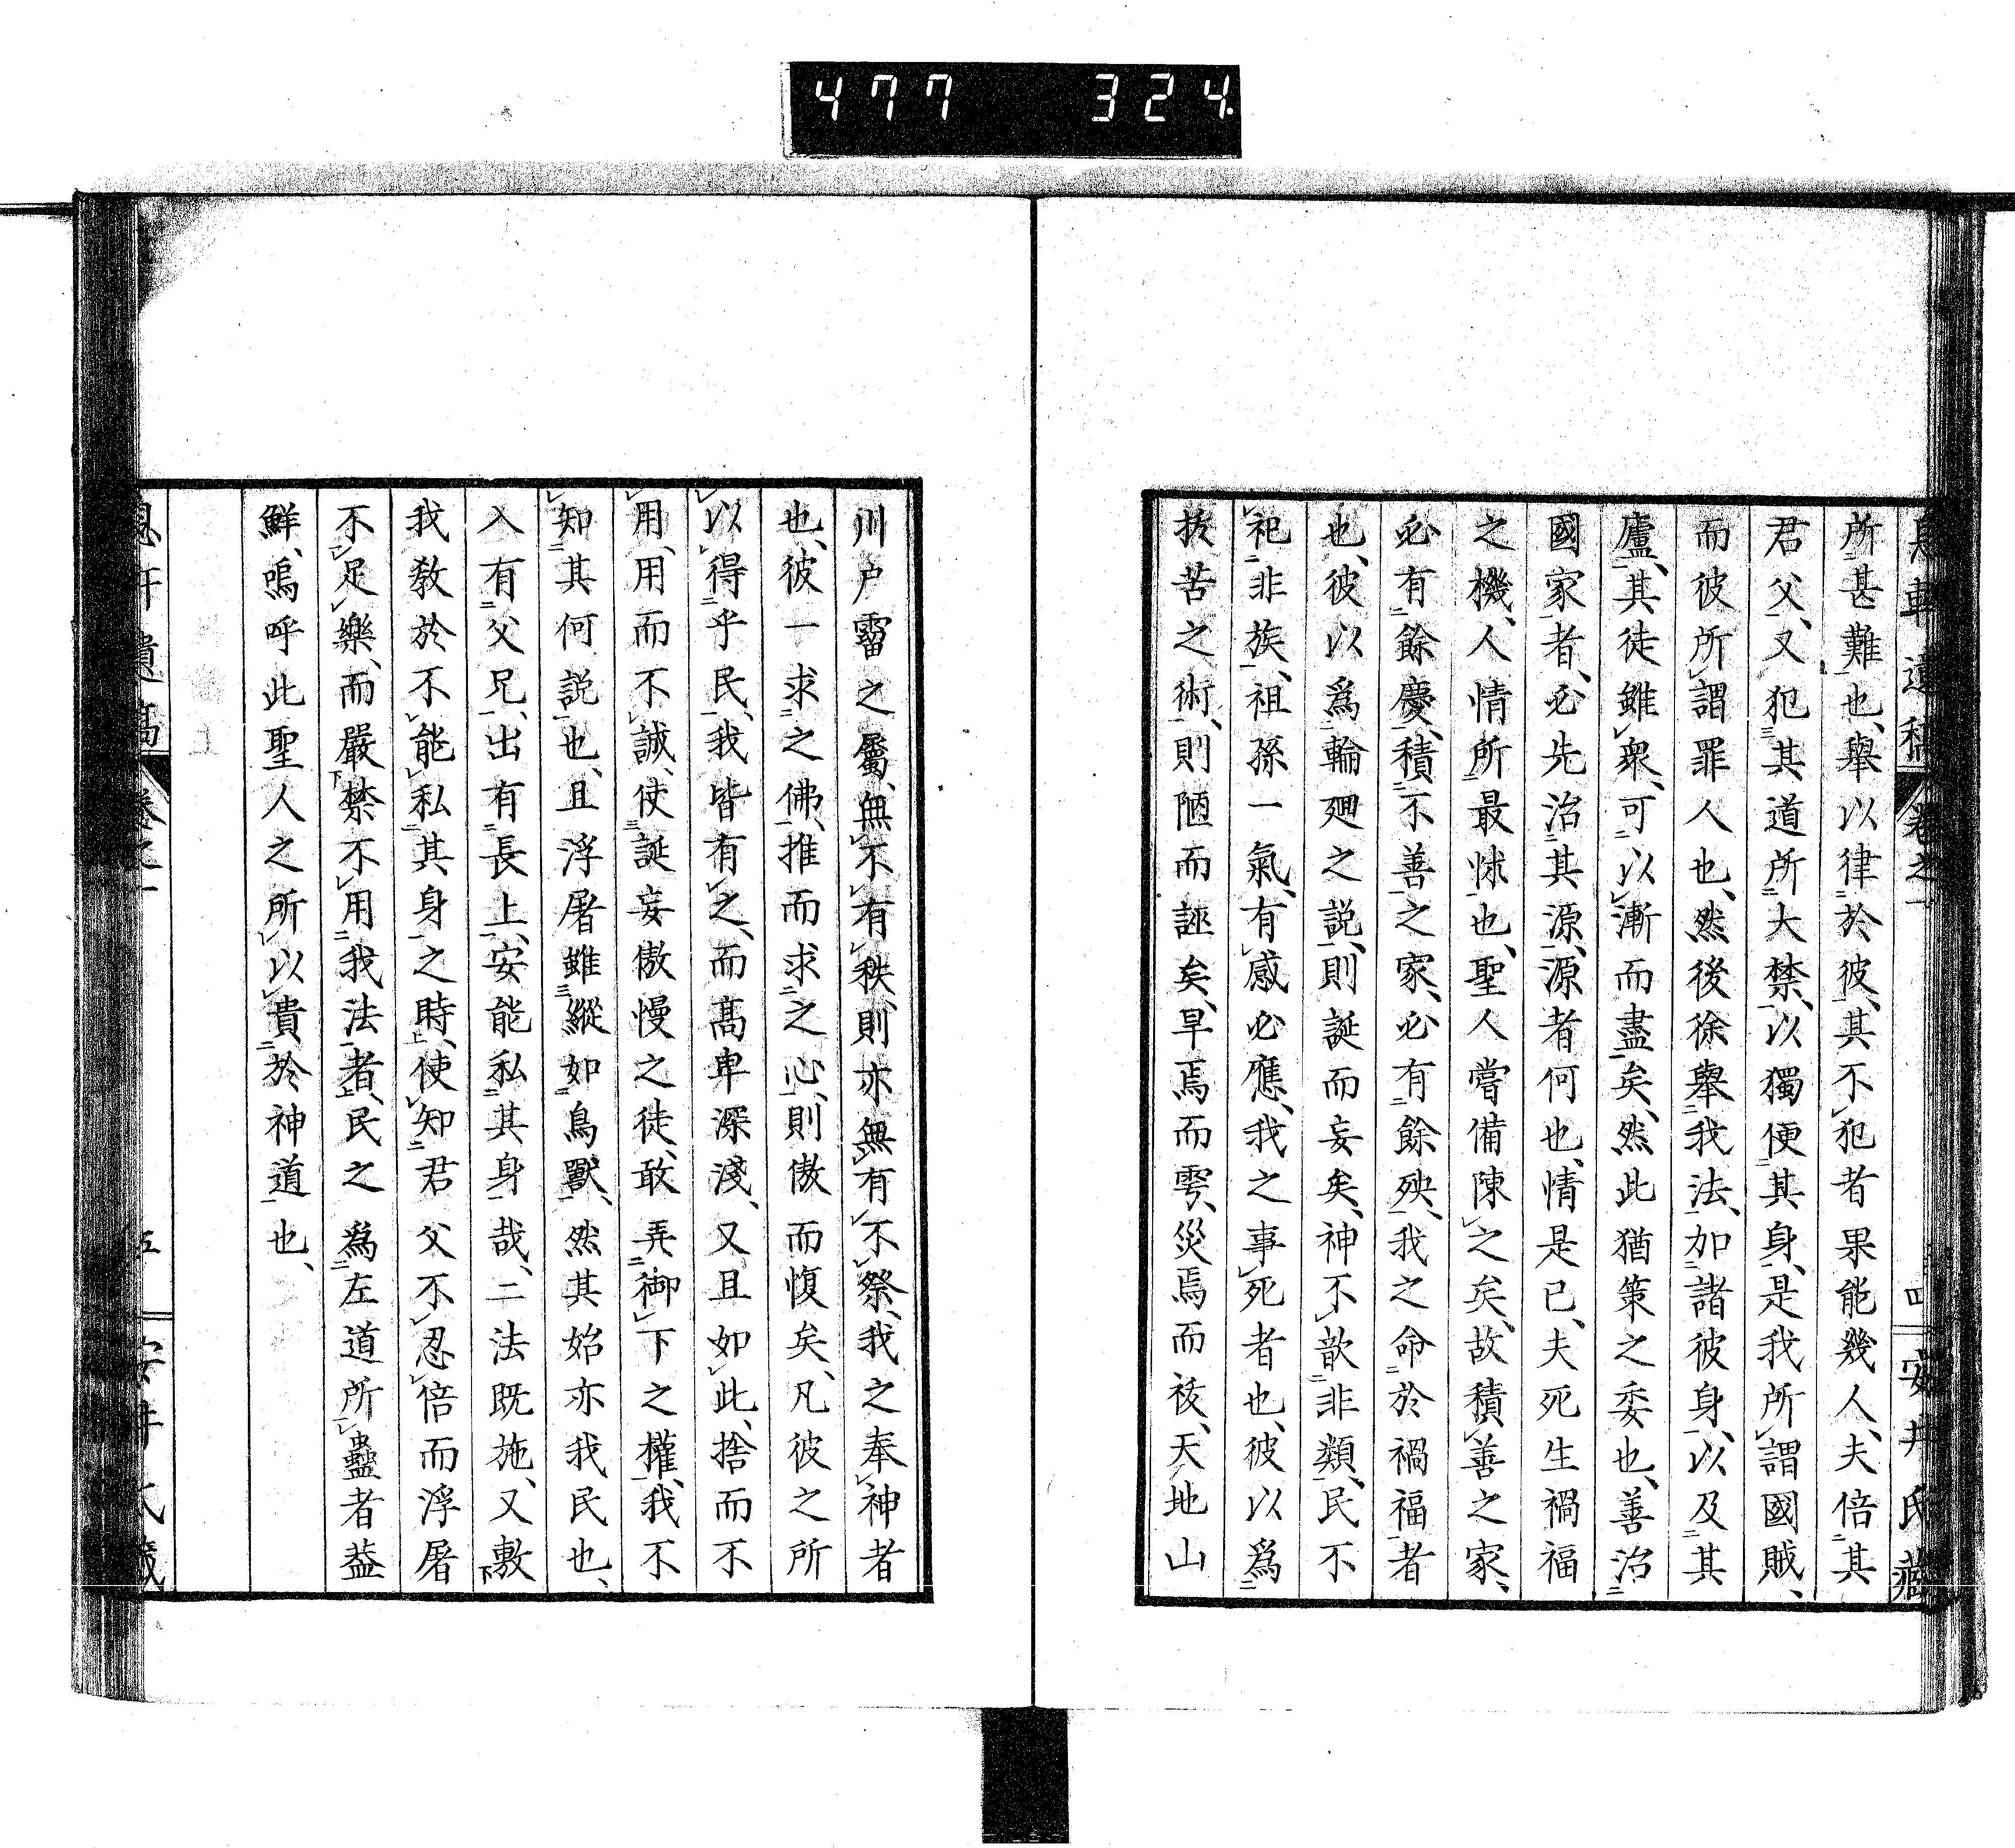 477 324
息軒遺稿 卷之一 四 安井氏藏
所甚難也、舉以律於彼、其不犯者果能幾人、夫倍其
君父、又犯其道所大禁、以獨便其身、是我所謂國賊、
而彼所謂罪人也、然後徐舉我法、加諸彼身、以及其
廬、其徒雖衆、可以漸而盡矣、然此猶策之委也、善治
國家者、必先治其源、源者何也、情是已、夫死生禍福
之機、人情所最怵也、聖人嘗備陳之矣、故積善之家、
必有餘慶、積不善之家、必有餘殃、我之命於禍福者
也、彼以爲輪廻之説、則誕而妄矣、神不歆非類、民不
祀非族、祖孫一氣、有感必應、我之事死者也、彼以爲
拔苦之術、則陋而誣矣、旱焉而雩、災焉而祓、天地山
川戸霤之屬、無不有秩、則亦無有不祭、我之奉神者
也、彼一求之佛、推而求之心、則傲而愎矣、凡彼之所
以得乎民、我皆有之、而髙卑深淺、又且如此、捨而不
用、用而不誠、使誕妄傲慢之徒、敢弄御下之權、我不
知其何説也、且浮屠雖縱如鳥獸、然其始亦我民也、
入有父兄、出有長上、安能私其身哉、二法既施、又敷
我教於不能私其身之時、使知君父不忍倍而浮屠
不足樂、而嚴禁不用我法者、民之爲左道所蠱者益
鮮、嗚呼此聖人之所以貴於神道也、
息軒遺稿 卷之一 五 安井氏藏